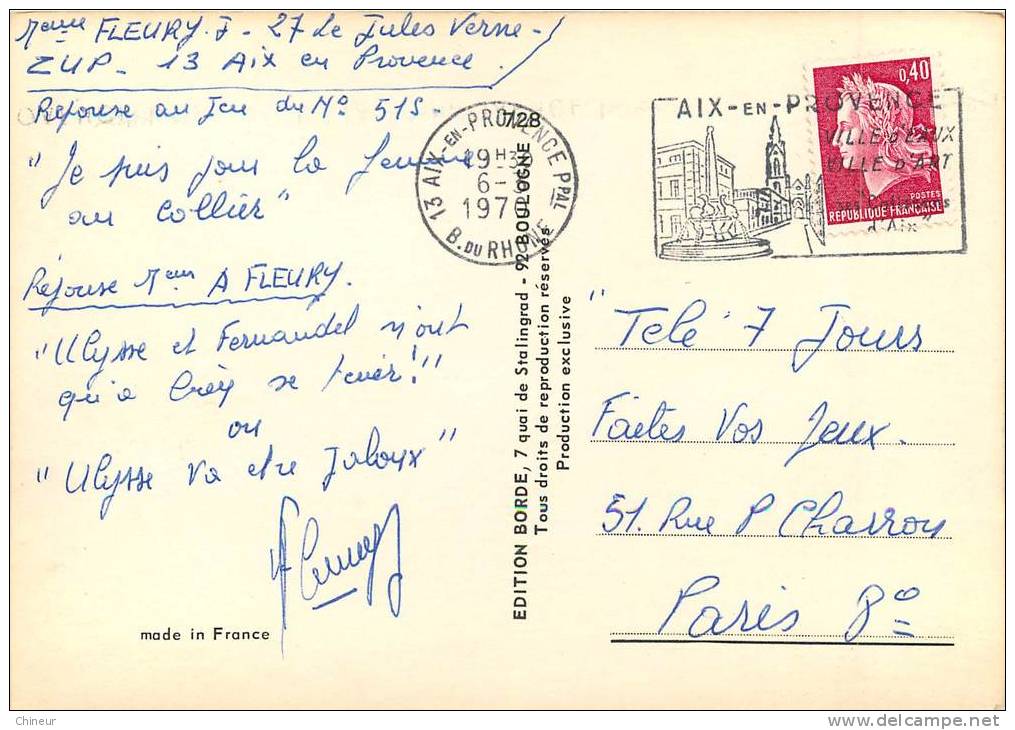 Mme FLEURY. J - 27 Le Jules Verne -
ZUP - 13 Aix en Provence.
Réponse au Jeu du No 515.
"Je suis pour la femme
au collier"
Réponse Mme A FLEURY.
"Ulysse et Fernandel n'ont
qu'à bien se tenir!"
ou
"Ulysse va etre Jaloux"
made in France
728
13 AIX-EN-PROVENCE PPAL
19H30
6-3
1970
B. DU RHONE
EDITION BORDE, 7 quai de Stalingrad - 92 BOULOGNE
Tous droits de reproduction réservés
Production exclusive
AIX-EN-PROVENCE
VILLE D'EAUX
VILLE D'ART
d'Aix"
0,40
POSTES
REPUBLIQUE FRANÇAISE
"Telé 7 Jours
Faites Vos Jeux.
51. Rue P Charron
Paris 8e
Chineur
delcampe.net